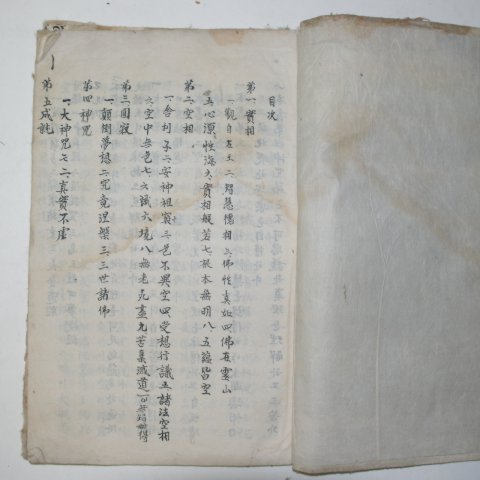 目次
第一 實相
一 觀自在王 二 智慧德相 三 佛性真如 四 佛在靈山
五 心源性海 六 實相般若 七 根本無明 八 五蘊皆空
第二 空相
一 舍利子 二 安神祖竅 三 色不異空 四 受想行識 五 諸法空相
六 空中無色 七 六識六境 八 無老死盡 九 苦集滅道
第三 圓寂
一 顛倒夢想 二 究竟涅槃 三 三世諸佛
第四 神咒
一 大神咒 二 真實不虛
第五 成